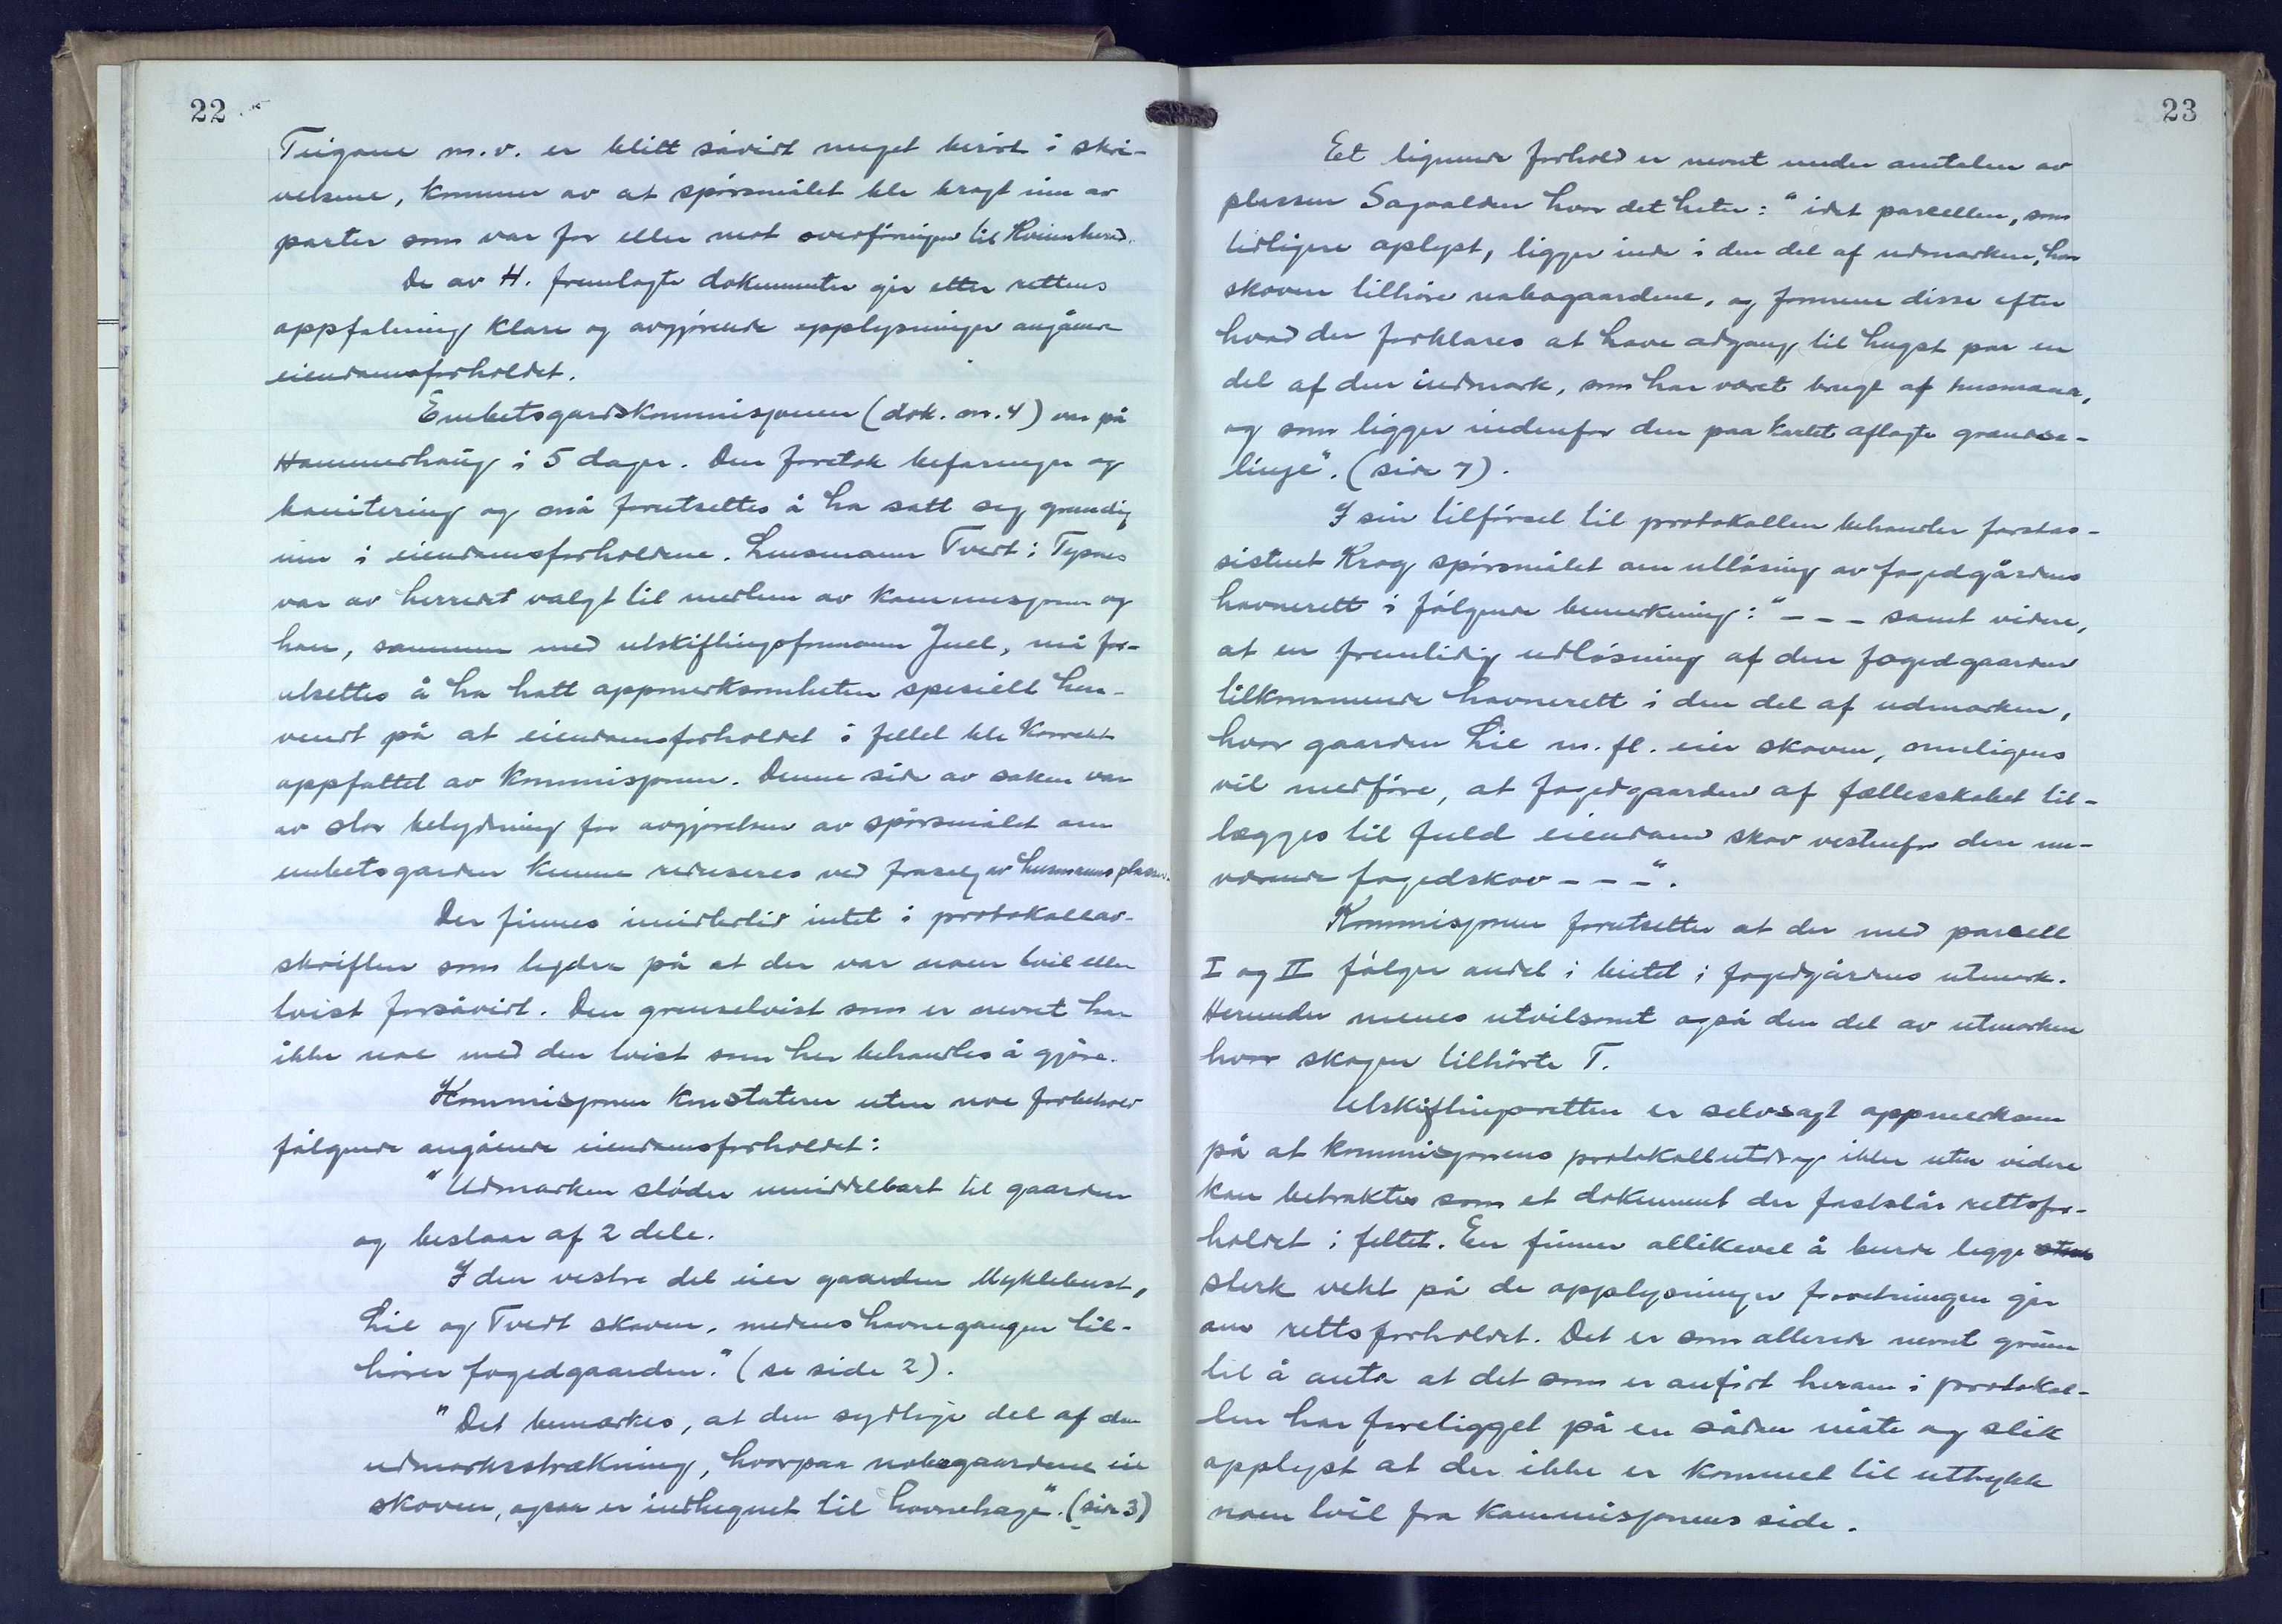 22
Teigane m.v. er blitt såvidt meget berört i skri-
velsene, kommer av at spörsmålet ble bragt inn av
parter som var for eller mot overföringen til Kvinnherad.
De av H. fremlagte dokumenter gir etter rettens
oppfatning klare og avgjörende opplysninger angående
eiendomsforholdet.
Embetsgardskommisjonen (dok. nr. 4) var på
Hammerhaug i 5 dager. Den foretok befaringer og
bonitering og må forutsettes å ha satt seg grundig
inn i eiendomsforholdene. Lensmann Tvedt i Tysnes
var av herredet valgt til medlem av kommisjonen og
han, sammen med utskiftingsformann Juel, må for-
utsettes å ha hatt oppmerksomheten spesielt hen-
vendt på at eiendomsforholdet i feltet ble korrekt
oppfattet av kommisjonen. Denne side av saken var
av stor betydning for avgjörelsen av spörsmålet om
embetsgarden kunne reduseres ved frasalg av husmannsplasser.
Der finnes imidlertid intet i protokollav-
skriften som tyder på at der var noen tvil eller
tvist forsåvidt. Den grensetvist som er nevnt har
ikke noe med den tvist som her behandles å gjöre.
Kommisjonen konstaterer uten noe forbehold
fölgende angående eiendomsforholdet:
"Udmarken stöder umiddelbart til gaarden
og bestaar af 2 dele.
I den vestre del eier gaarden Myklebust,
Lie og Tvedt skoven, medens havnegangen til-
hörer fogedgaarden." (se side 2).
"Det bemærkes, at den sydlige del af den
udmarksstrækning, hvorpaa nabogaardene eie
skoven, ogsaa er indhegnet til havnehage". (side 3)
23
Et lignende forhold er nevnt under omtalen av
plassen Sagvolden hvor det heter: "idet parcellen, som
tidligere oplyst, ligger inde i den del af udmarken, hvor
skoven tilhöre nabogaardene, og formene disse efter
hvad der forklares at have adgang til hugst paa en
del af den indmark, som har været brugt af husmann,
og som ligger indenfor den paa kartet aflagte grændse-
linje". (side 7).
I sin tilförsel til protokollen behandler forstas-
sistent Krag spörsmålet om utlösing av fogedgårdens
havnerett i fölgende bemerkning: "--- samt videre,
at en fremtidig udlösning af den fogedgaarden
tilkommende havnerett i den del af udmarken,
hvor gaarden Lie m. fl. eier skoven, muligens
vil medföre, at fogedgaarden af fællesskabet til-
lægges til fuld eiendom skov vestenfor den nu-
værende fogedskov ---".
Kommisjonen forutsetter at der med parcell
I og II fölger andel i beitet i fogedgårdens utmark.
Herunder menes utvilsomt også den del av utmarken
hvor skogen tilhörte T.
Utskiftingsretten er selvsagt oppmerksom
på at kommisjonens protokollutdrag ikke uten videre
kan betraktes som et dokument der fastslår rettsfor-
holdet i feltet. En finner allikevel å burde legge
sterk vekt på de opplysninger forretningen gir
om rettsforholdet. Det er som allerede nevnt grunn
til å anta at det som er anfört herom i protokol-
len har foreligget på en sådan måte og slik
opplyst at der ikke er kommet til uttrykk
noen tvil fra kommisjonens side.